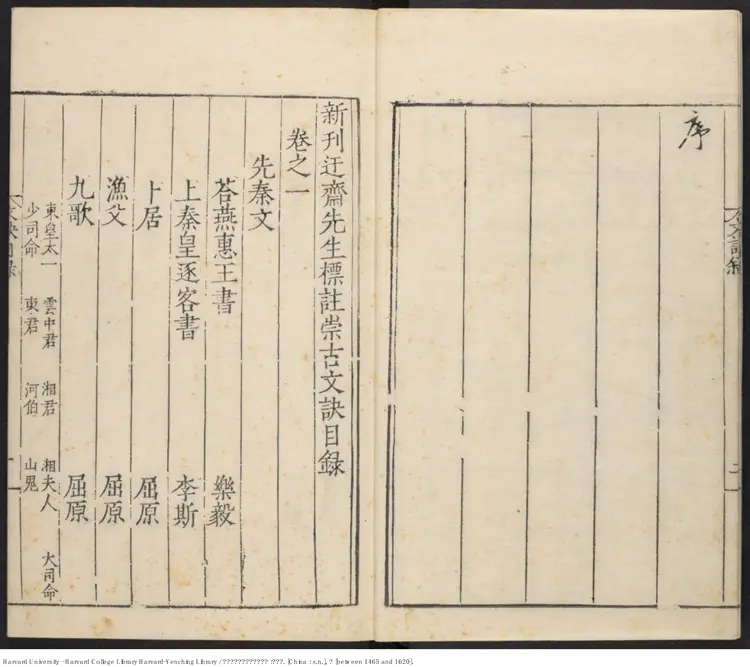 序
新刊迂齋先生標註崇古文訣目録
卷之一
先秦文
荅燕惠王書 樂毅
上秦皇逐客書 李斯
卜居 屈原
漁父 屈原
九歌 屈原
東皇太一 雲中君 湘君 湘夫人 大司命
少司命 東君 河伯 山鬼
Harvard University - Harvard College Library Harvard-Yenching Library / ???????????? :???. [China : s.n.], ? [between 1465 and 1620].